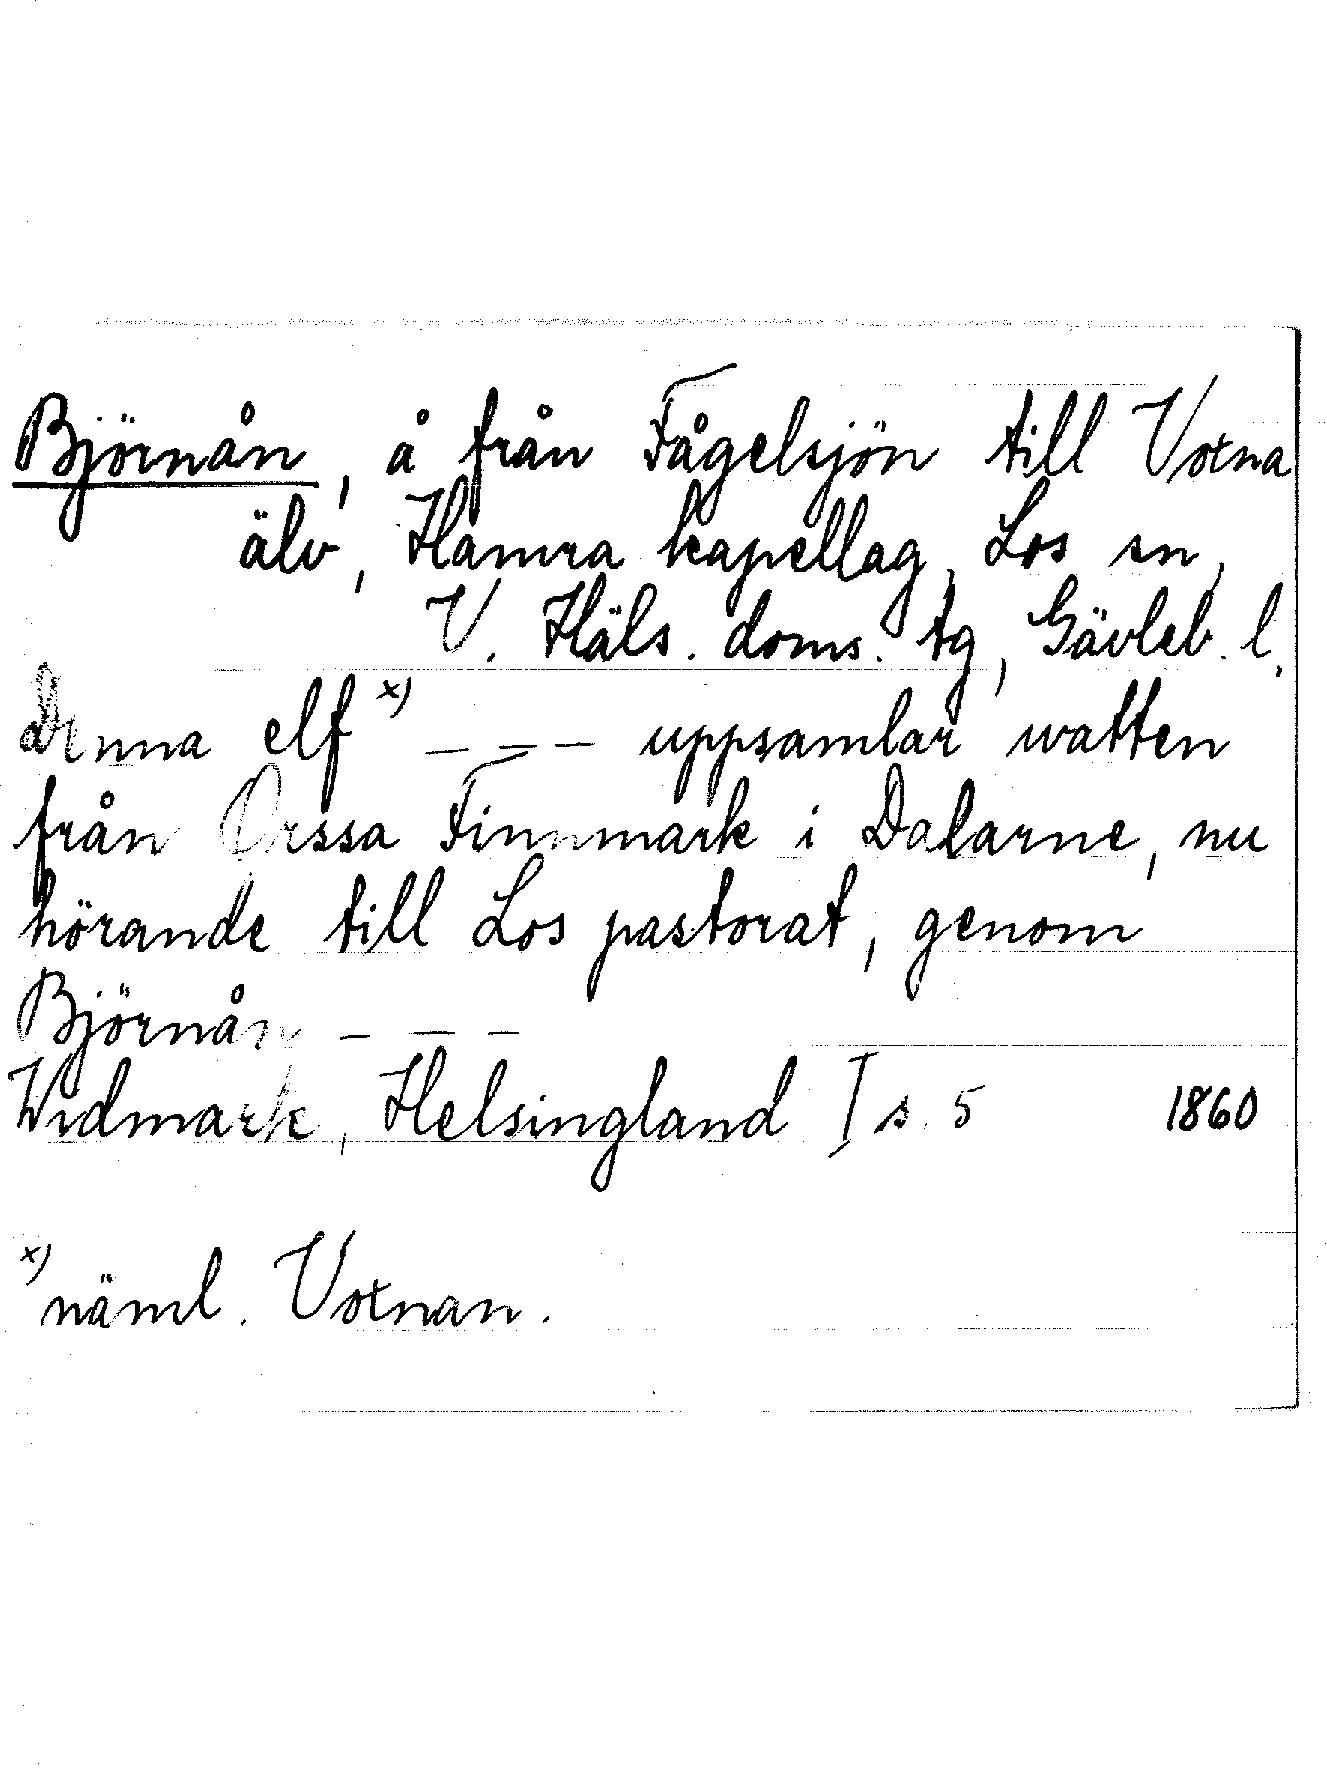 Björnån, å från Fågelsjön till Voxna
älv, Hamra kapellag, Los sn,
V. Häls. doms. tg, Gävleb. l.
Denna elf x) _ _ _ uppsamlar watten
från Orssa Finnmark i Dalarne, nu
hörande till Los pastorat, genom
Björnån _ _ _
Widmark, Helsingland I s. 5 1860
x) näml. Voxnan.